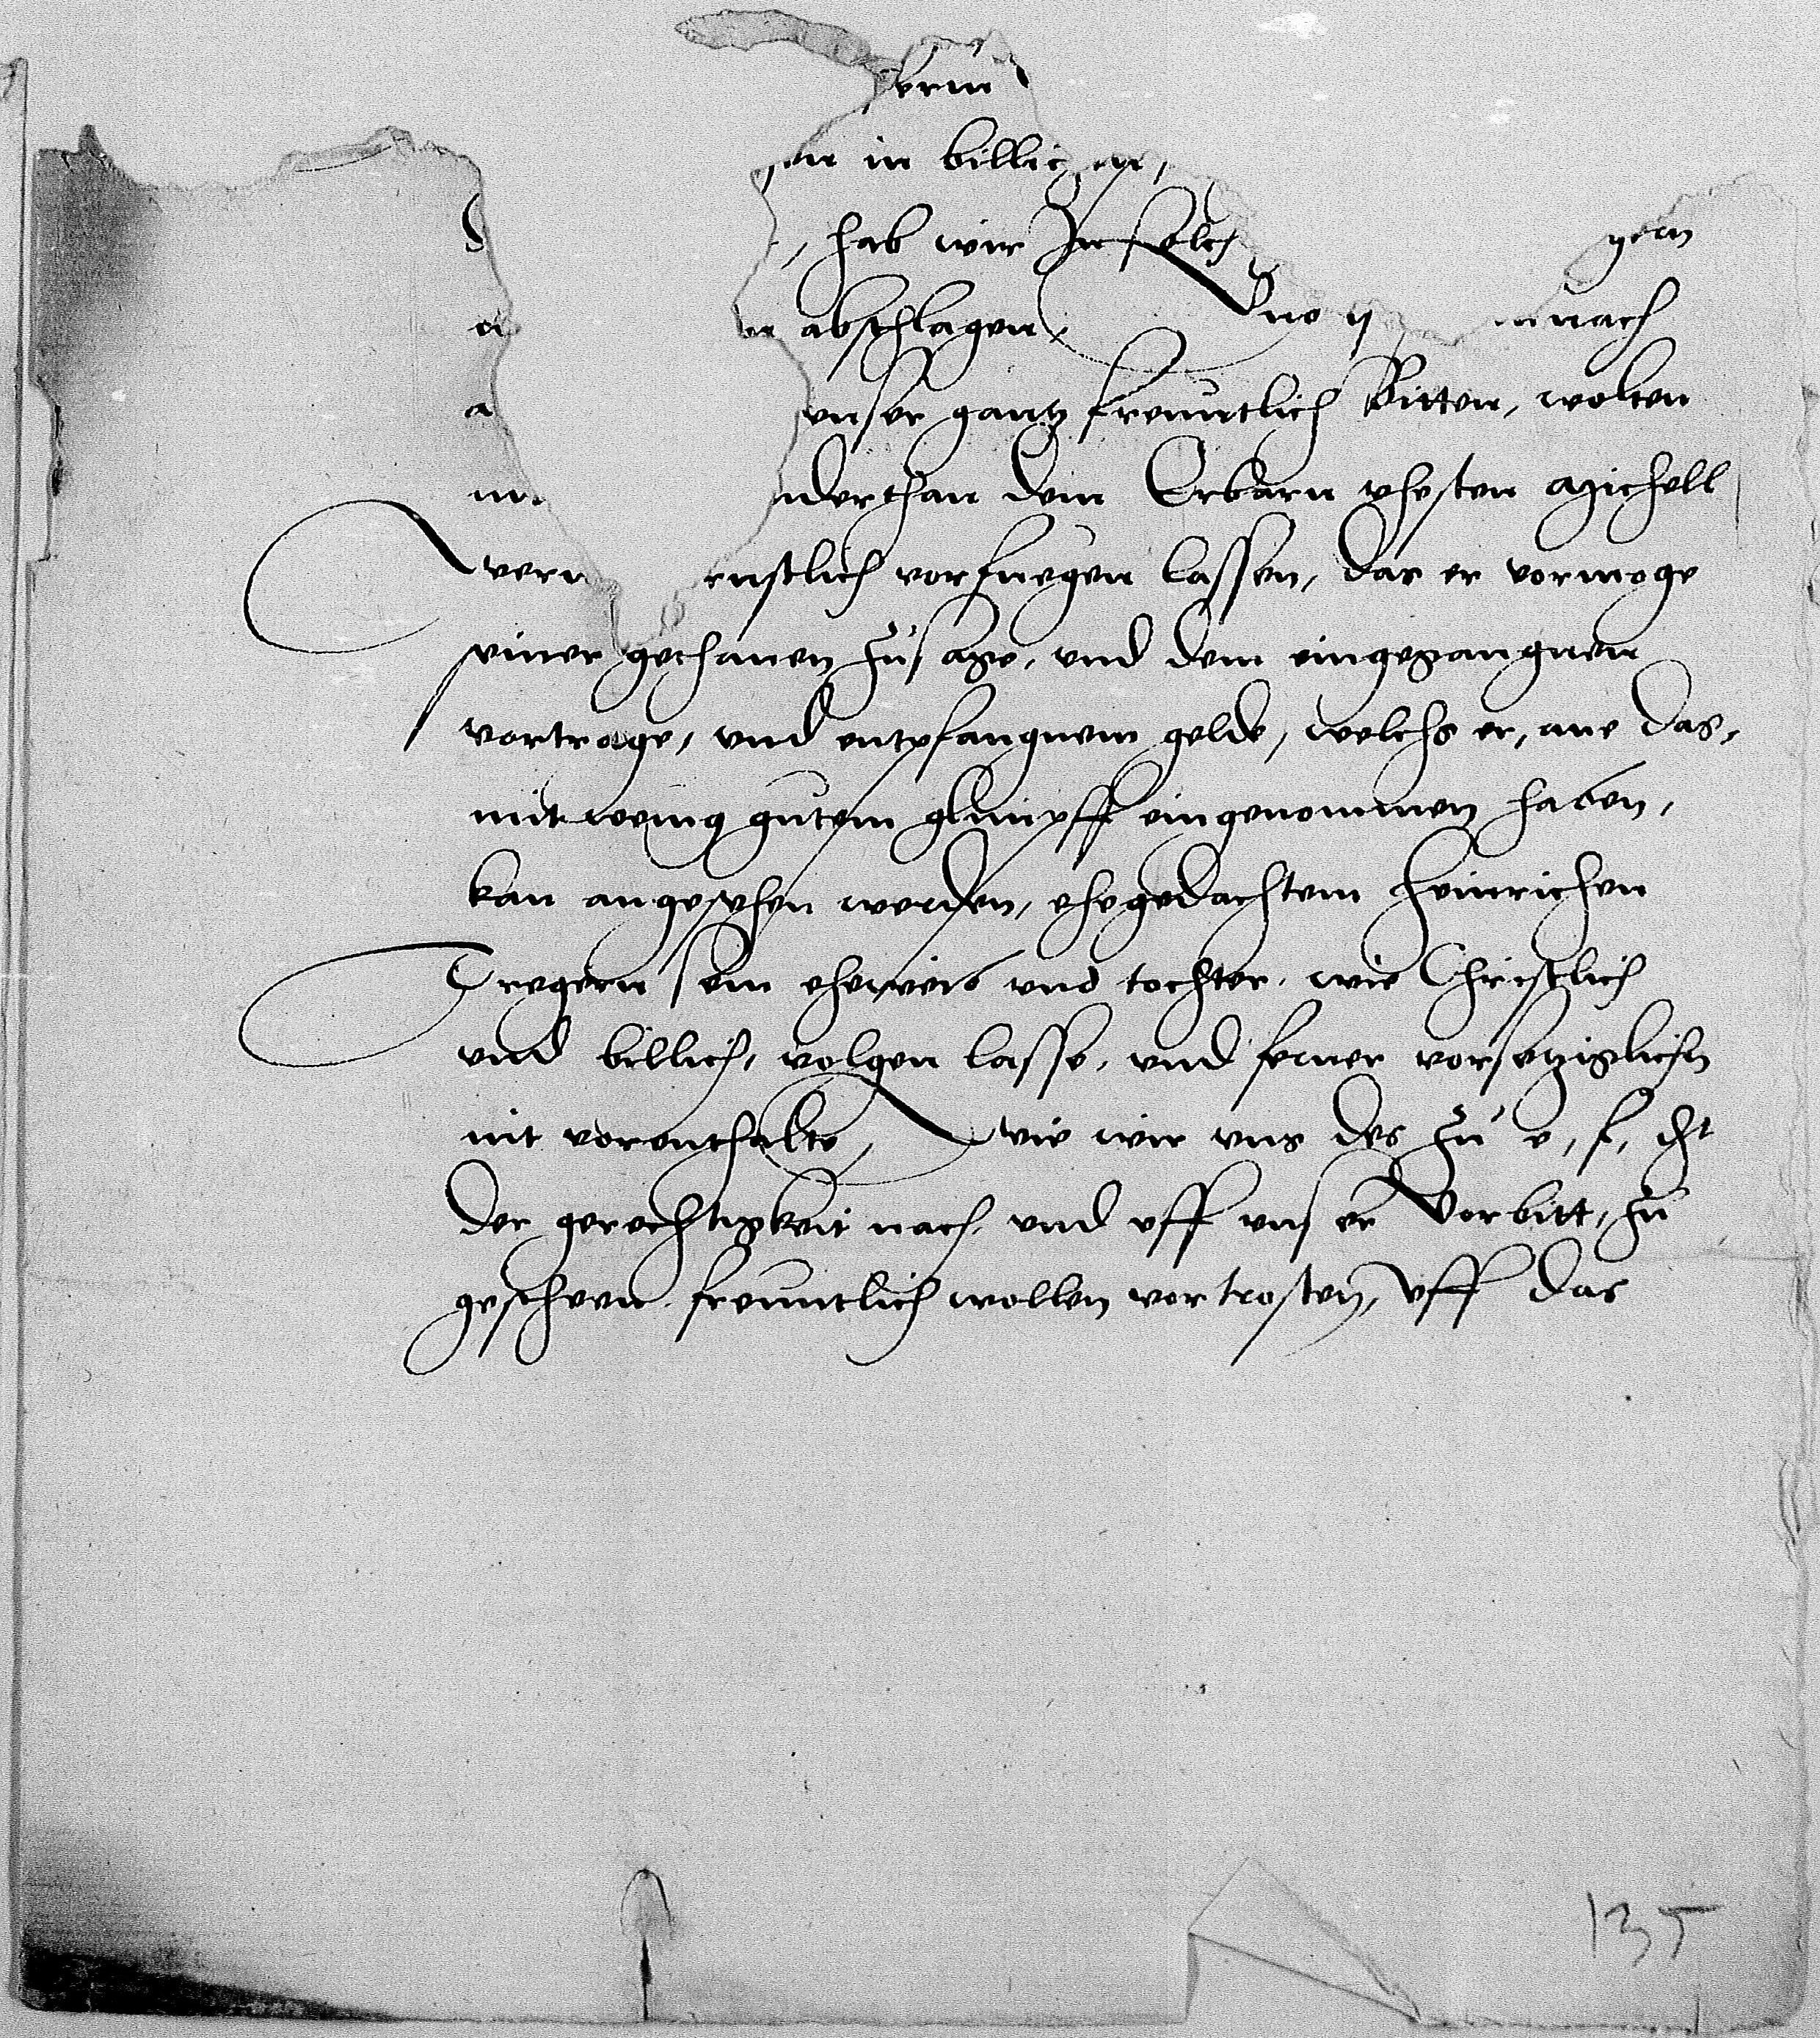 erm
en in billichen,
hab wir In solch gern
abschlagen, Vnd nach
vnser gantz freuntlich Bitten, wolten
nderthan dem Erbarn vhesten Michell
wern rnstlich vorfuegen lassen, das er vormoge
seiner gethanen zusage, vnd dem eingegangnen
vortrage, vnd entpfangnem gelde, welchs er, ane das,
mit wenig gutem glimpff eingenommen haben,
kan angesehen werden, ehegedachtem Heinrichen
Tregern sein eheweib vnd tochter, wie Christlich
vnd billich, volgen lasse, vnd ferner vorsetziglichen
nit vorenthalte, wie wir vns des zu e, f,
der gerechtigkeit nach, vnd vff vnser Vorbitt, zu
gescheen, freuntlich wollen vortrosten, Vff das
135